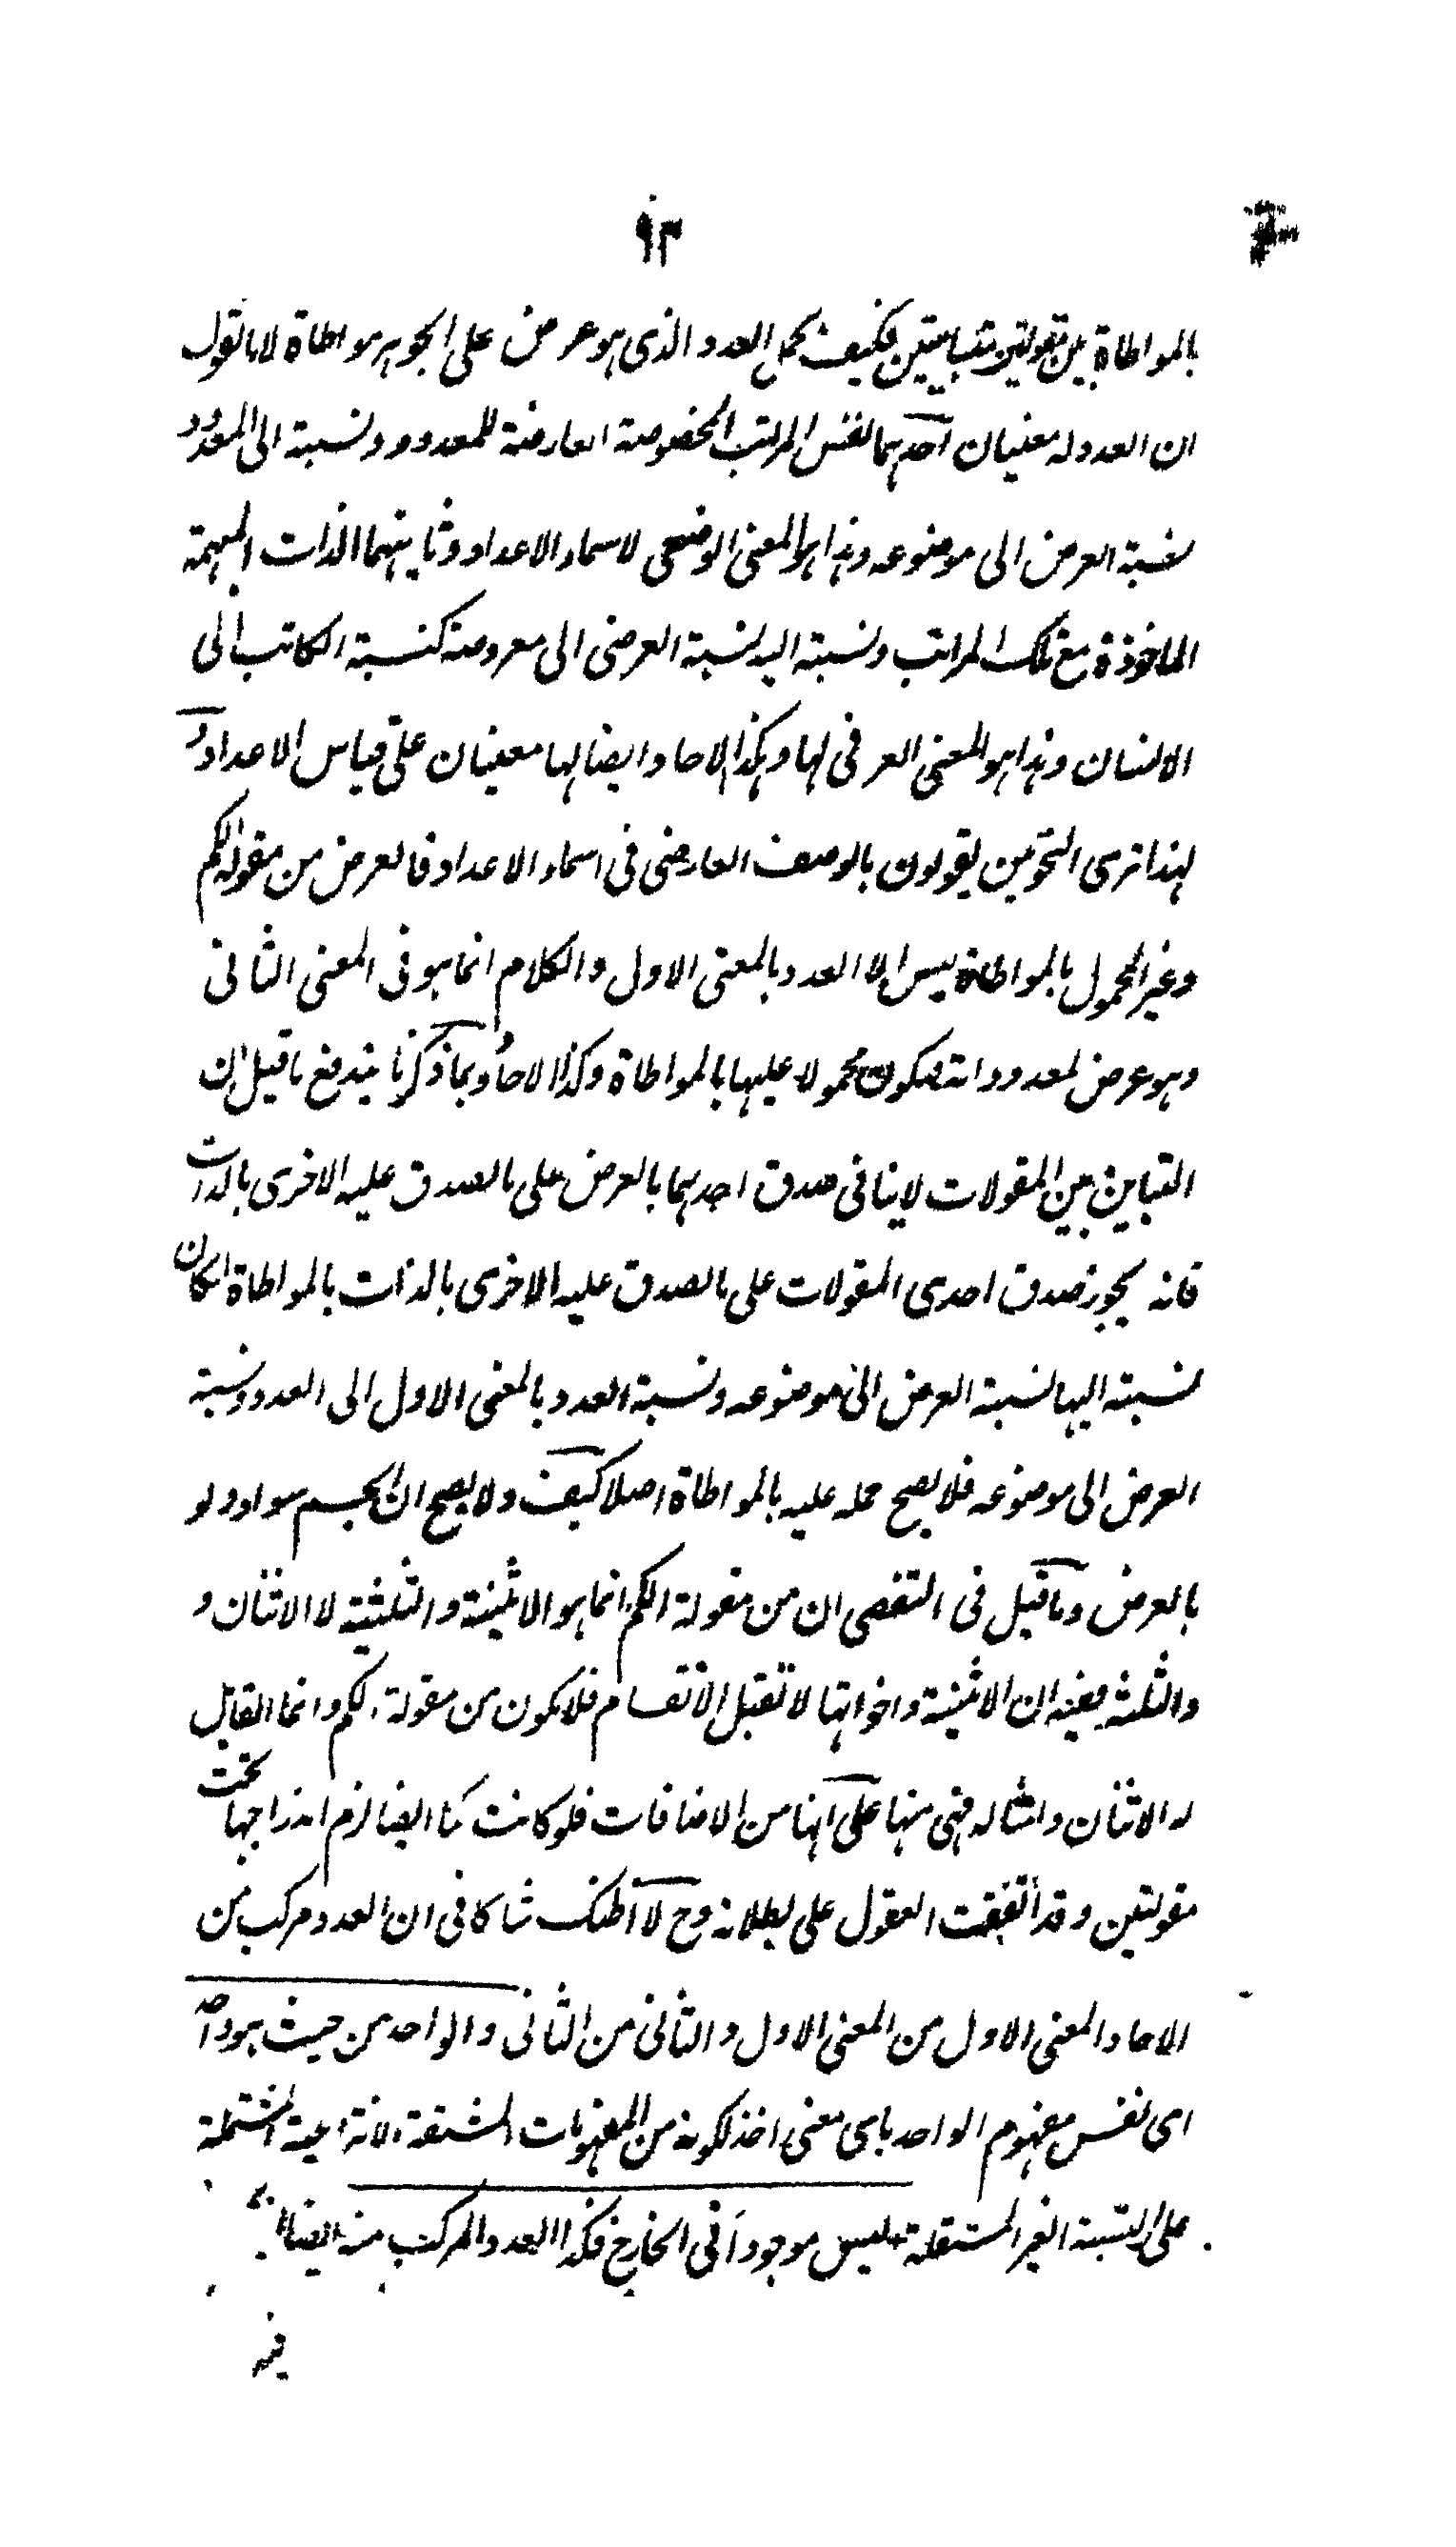 ٩٣
بالمواطاة بين مقولتين متباينتين فكيف يحمل العدد الذى هو عرض على الجوهر مواطاة لانا نقول
ان العدد له معنيان احدهما نفس المراتب المخصوصة العارضة للمعدود ونسبة الى المعدود
نسبة العرض الى موضوعه وهذا هو المعنى الوضعى لاسماء الاعداد وثانيهما الذات المبهمة
الماخوذة مع تلك المراتب ونسبته اليه نسبة العرضى الى معروضه كنسبة الكاتب الى
الانسان وهذا هو المعنى العرفى لها وهكذا الاحاد ايضا لها معنيان على قياس الاعداد و
لهذا ترى النحويين يقولون بالوصف العارضى فى اسماء الاعداد فالعرض من مقولة الكم
وغير المحمول بالمواطاة ليس الا العدد بالمعنى الاول والكلام انما هو فى المعنى الثانى
وهو عرض لمعدوداته فيكون محمولا عليها بالمواطاة وكذا الاحاد وبما ذكرنا يندفع ما قيل ان
التباين بين المقولات لا ينافى صدق احدهما بالعرض على ما صدق عليه الاخرى بالذات
فانه يجوز صدق احدى المقولات على ما صدق عليه الاخرى بالذات بالمواطاة ان كان
نسبته اليها نسبة العرض الى موضوعه ونسبة العدد بالمعنى الاول الى المعدود نسبة
العرض الى موضوعه فلا يصح حمله عليه بالمواطاة اصلا كيف ولا يصح ان الجسم سواد ولو
بالعرض وما قيل فى التفصى ان من مقولة الكم انما هو الاثنينية والثلثية لا الاثنان و
والثلثة ففيه ان الاثنينية واخواتها لا تقبل الانقسام فلا يكون من مقولة الكم وانما القابل
له الاثنان وامثاله فهى منها على انها من الاضافات فلو كانت كما ايضا لزم اندراجها تحت
مقولتين وقد اتفقت العقول على بطلانه وح لا اظنك شاكا فى ان العدد مركب من
الاحاد المعنى الاول من المعنى الاول والثانى من الثانى والواحد من حيث هو واحد
اى نفس مفهوم الواحد باى معنى اخذ لكونه من المفهومات المشتقة المشتملة
على النسبة الغير المستقلة ليس موجودا فى الخارج فكذا العدد المركب منه ايضا
فيه